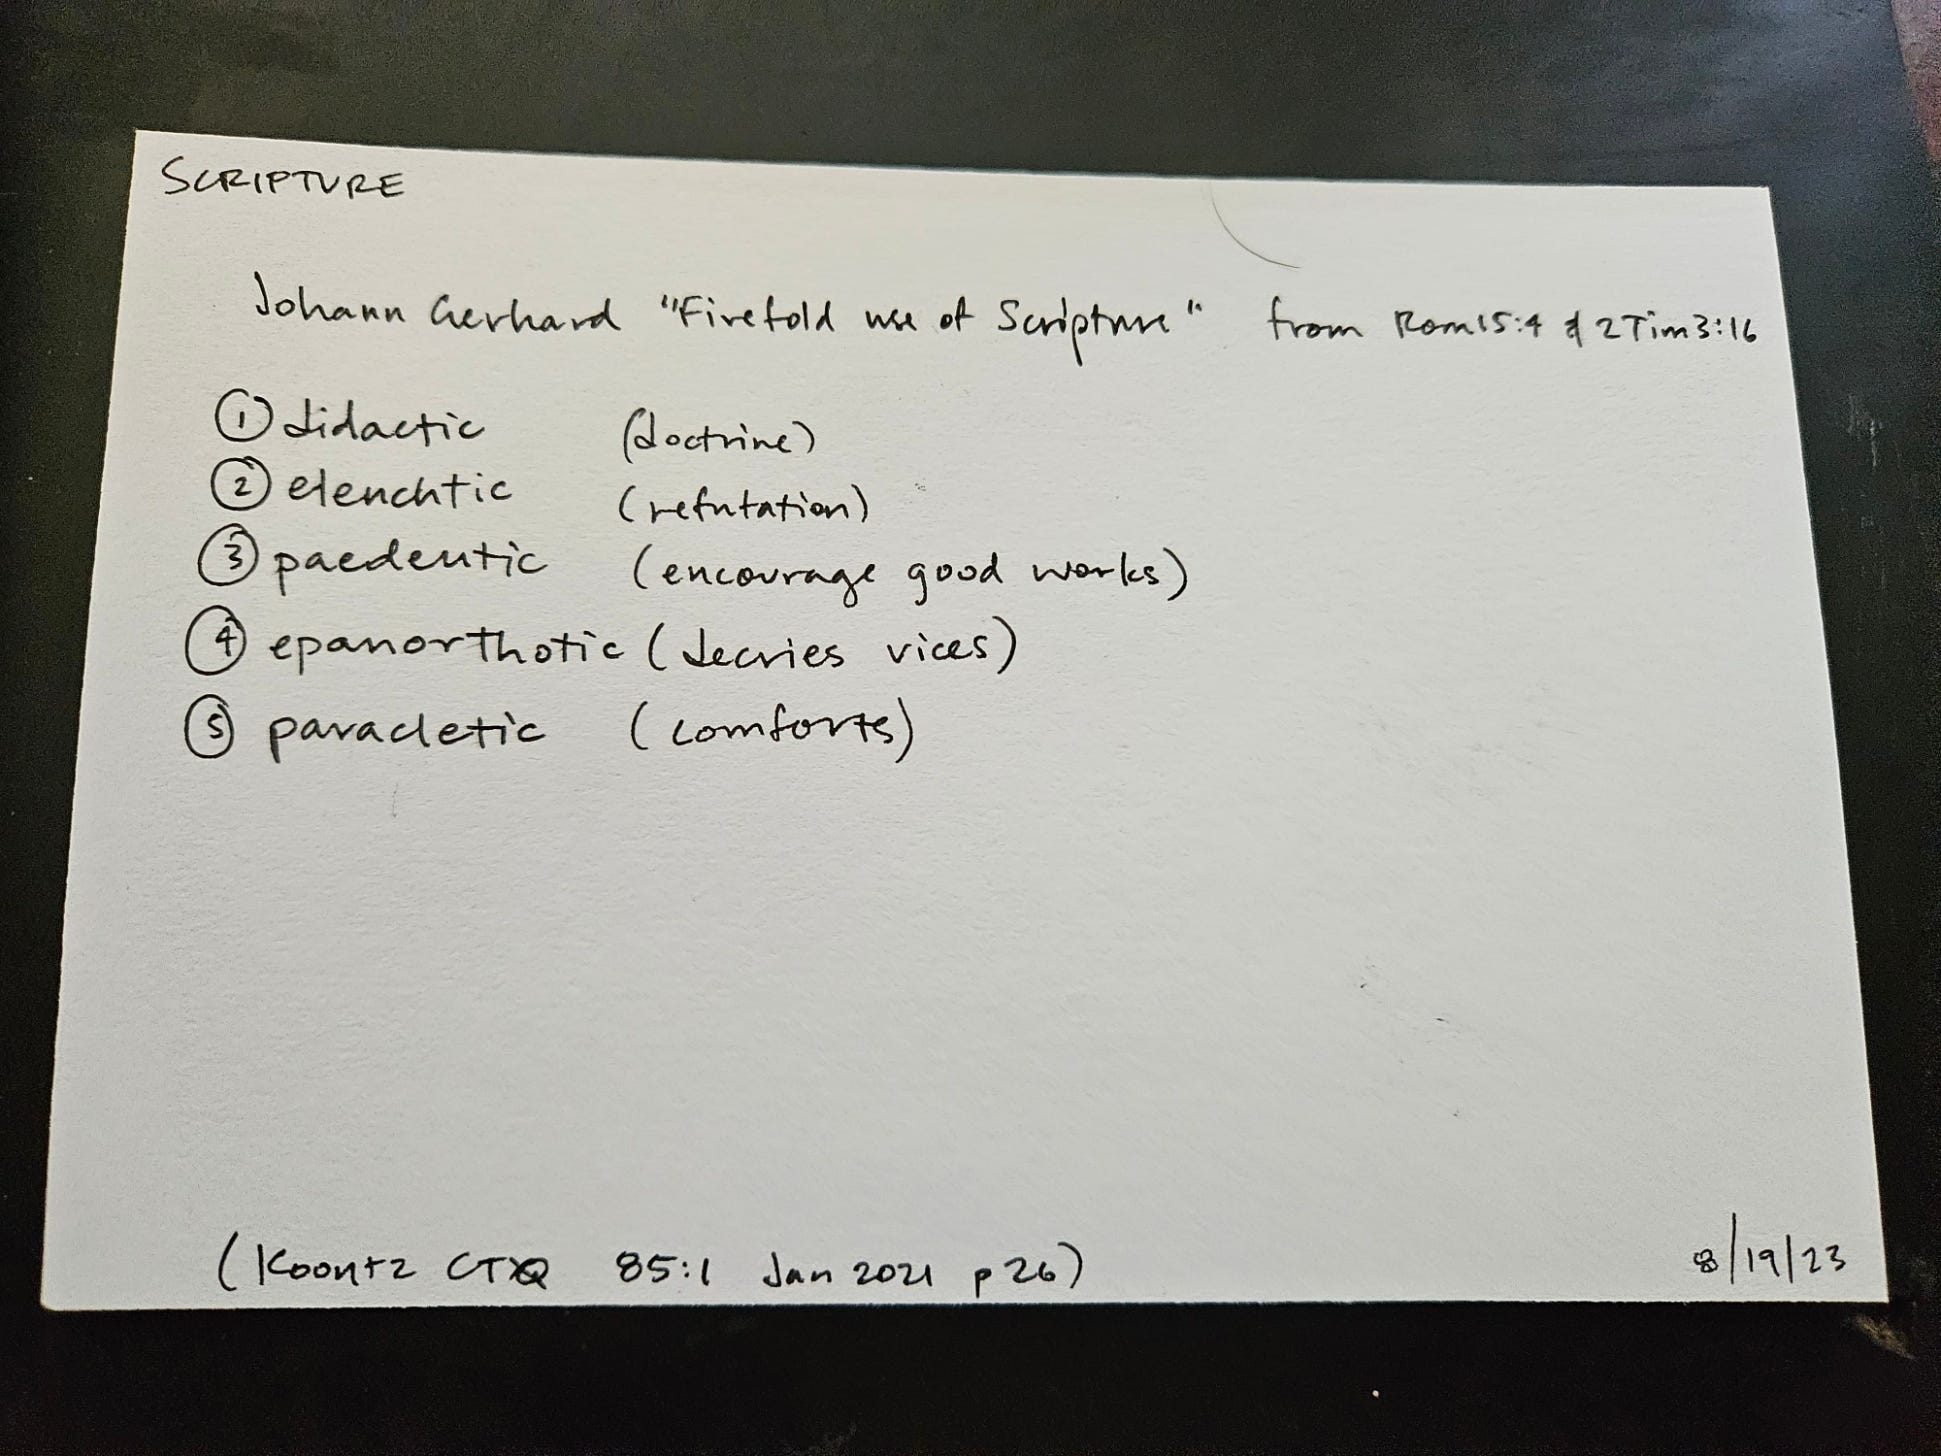 SCRIPTURE
Johann Gerhard "Fivefold use of Scripture" from Rom 15:4 & 2 Tim 3:16
① didactic (doctrine)
② elenchtic (refutation)
③ paedeutic (encourage good works)
④ epanorthotic (decries vices)
⑤ paracletic (comforts)
(Koontz CTQ 85:1 Jan 2021 p 26) 8/19/23